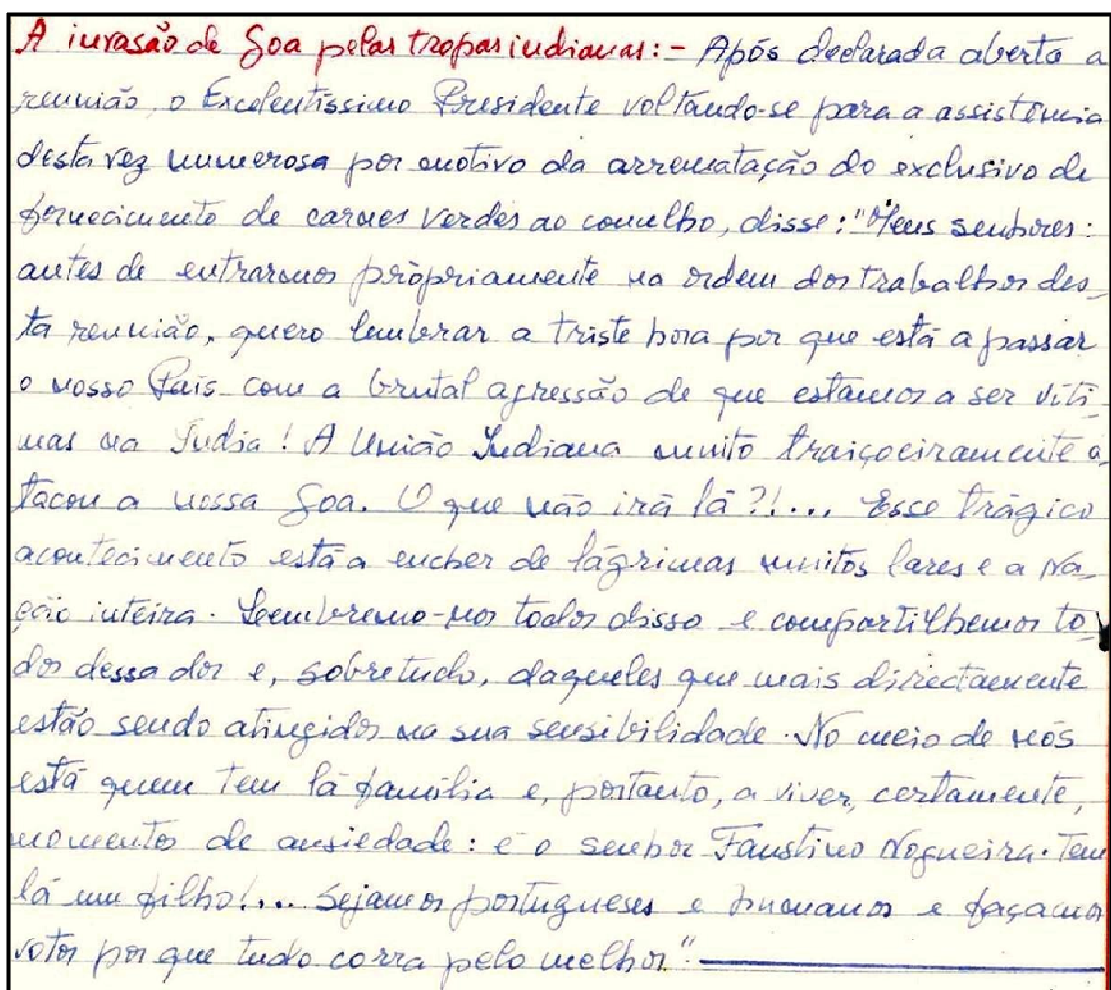 A invasão de Goa pelas tropas indianas:- Após declarada aberta a
reunião, o Excelentíssimo Presidente voltando-se para a assistência
desta vez numerosa por motivo da arrematação do exclusivo de
fornecimento de carnes verdes ao concelho, disse: "Meus senhores:
antes de entrarmos pròpriamente na ordem dos trabalhos des-
ta reunião, quero lembrar a triste hora por que está a passar
o nosso País com a brutal agressão de que estamos a ser víti-
mas na Índia! A União Indiana muito traiçoeiramente a-
tacou a nossa Goa. O que não irá lá?!... Esse trágico
acontecimento está a encher de lágrimas muitos lares e a Na-
ção inteira. Lembremo-nos todos disso e compartilhemos to-
dos dessa dor e, sobretudo, daqueles que mais directamente
estão sendo atingidos na sua sensibilidade. No meio de nós
está quem tem lá família e, portanto, a viver, certamente,
momentos de ansiedade: é o senhor Faustino Nogueira. Tem
lá um filho!... Sejamos portugueses e humanos e façamos
votos por que tudo corra pelo melhor".